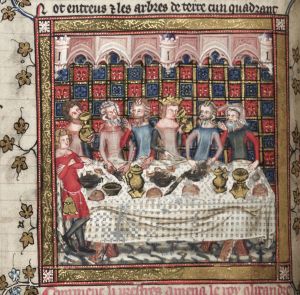 ot entreus ⁊ les arbres de terre cun quadrant
Comment amena le roy